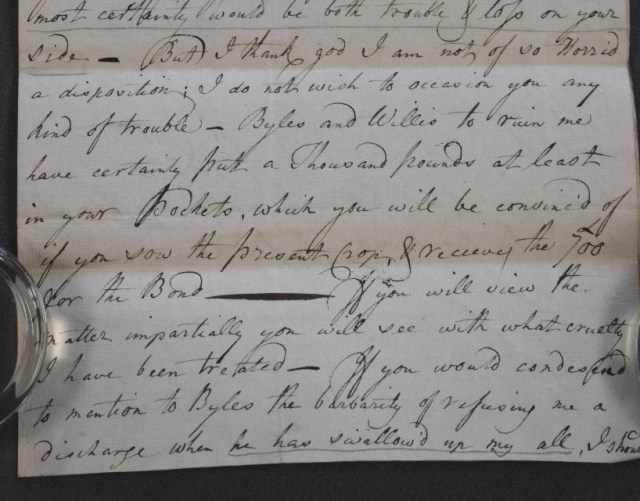 most certainly would be both trouble & loss on your
side — But I thank god I am not of so Horrid
a disposition; I do not wish to occasion you any
kind of trouble — Byles and Willis to ruin me
have certainly put a Thousand pounds at least
in your Pockets, which you will be convinc'd of
if you sow the present Crop, & recieve the 700
for the Bond — If you will view the
matter impartially you will see with what cruelty
I have been treated — If you would condescend
to mention to Byles the barbarity of refusing me a
discharge when he has swallow'd up my all, I